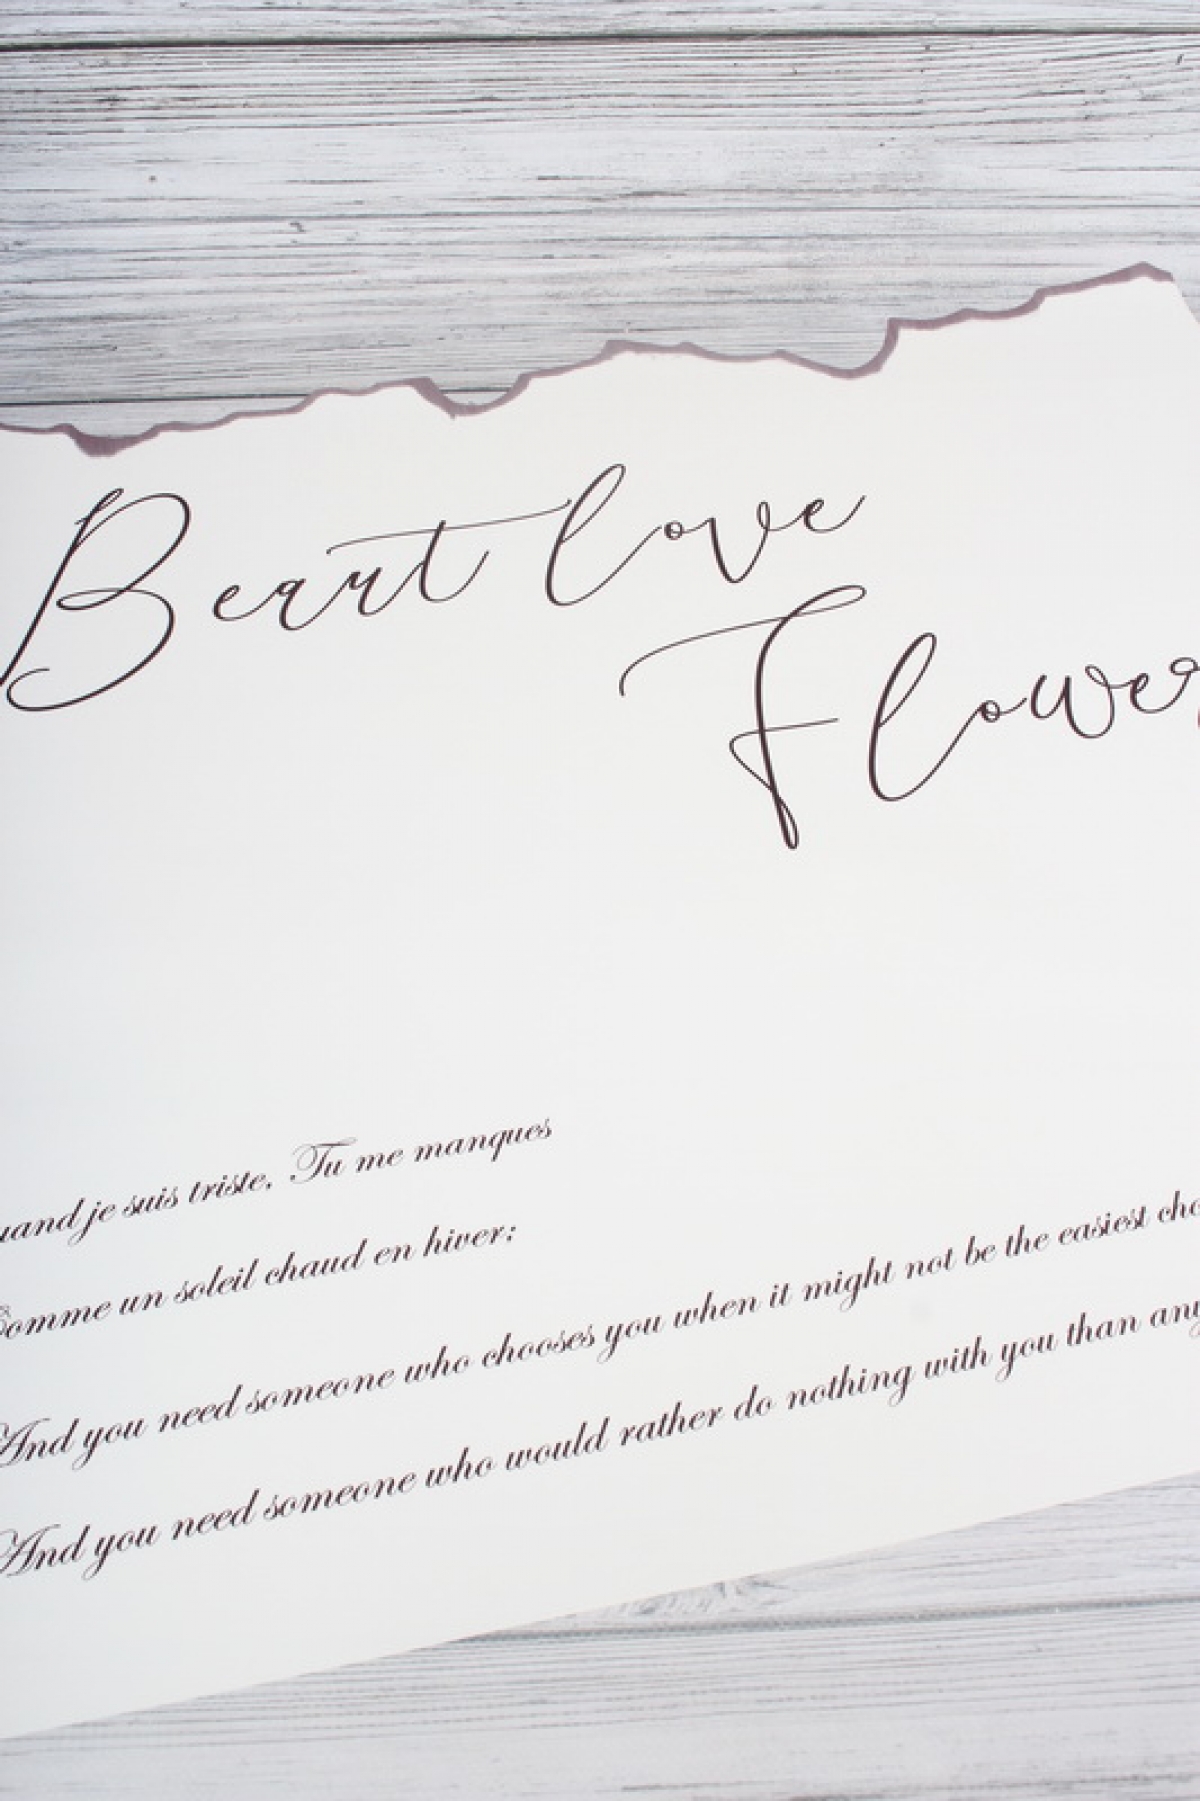 Beart love
Flower
uand je suis triste, Tu me manques
Comme un soleil chaud en hiver;
And you need someone who chooses you when it might not be the easiest cho
And you need someone who would rather do nothing with you than any